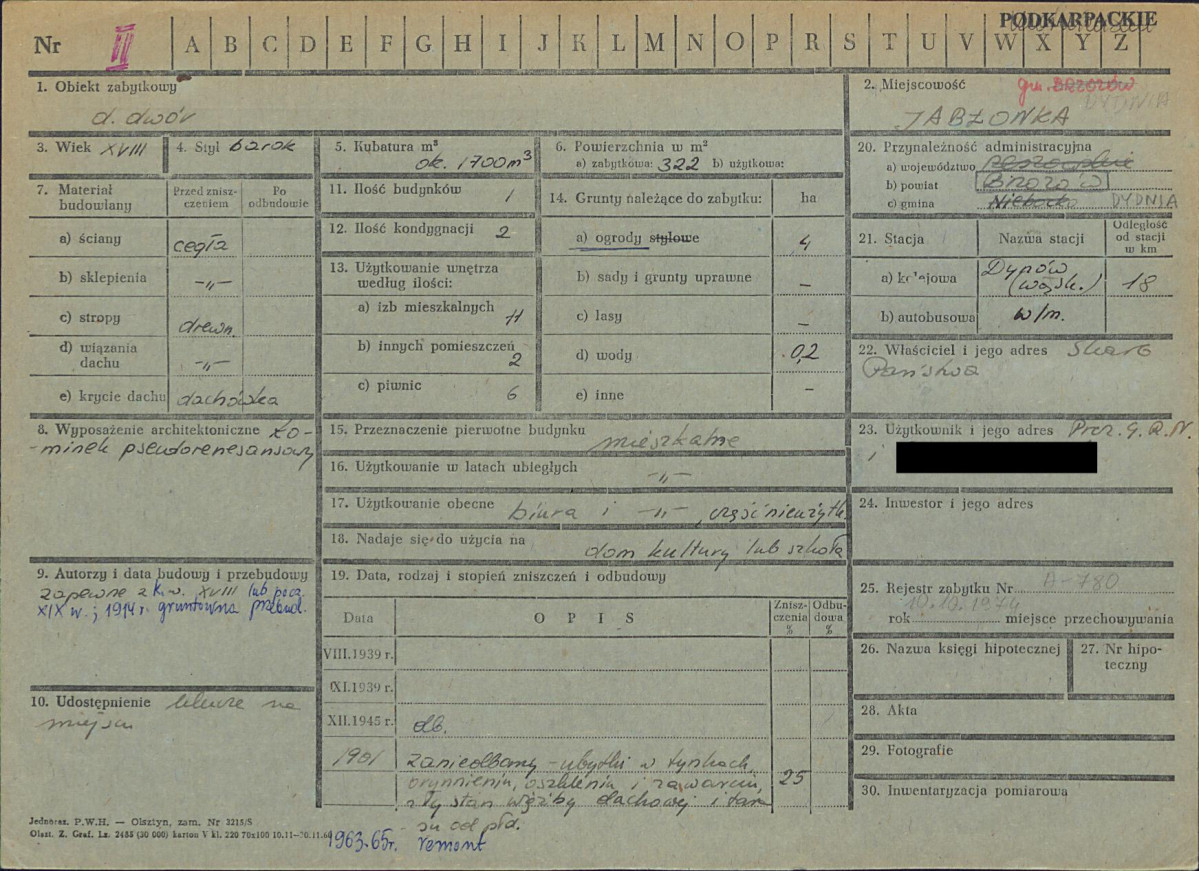 PODKARPACKIE
Nr II A B C D E F G H I J K L M N O P R S T U V W X Y Z
1. Obiekt zabytkowy
d. dwór
2. Miejscowość gm. Brzozów
DYDNIA
JABŁONKA
3. Wiek XVIII
4. Styl barok
5. Kubatura m³
ok. 1700 m³
6. Powierzchnia w m²
a) zabytkowa: 322 b) użytkowa:
7. Materiał budowlany
Przed zniszczeniem
Po odbudowie
a) ściany cegła
b) sklepienia -„-
c) stropy drewn.
d) wiązania dachu -„-
e) krycie dachu dachówka
8. Wyposażenie architektoniczne ko-
-minek pseudorenesansowy
9. Autorzy i data budowy i przebudowy
zapewne z k. w. XVIII lub pocz.
XIX w.; 1914 r. gruntowna przebud.
10. Udostępnienie klucze na
miejscu
11. Ilość budynków 1
12. Ilość kondygnacji 2
13. Użytkowanie wnętrza
według ilości:
a) izb mieszkalnych 11
b) innych pomieszczeń 2
c) piwnic 6
14. Grunty należące do zabytku: ha
a) ogrody stylowe 4
b) sady i grunty uprawne –
c) lasy –
d) wody 0,2
e) inne –
15. Przeznaczenie pierwotne budynku
mieszkalne
16. Użytkowanie w latach ubiegłych
-„-
17. Użytkowanie obecne biura i -„-, część nieużytk.
18. Nadaje się do użycia na
dom kultury lub szkoła
19. Data, rodzaj i stopień zniszczeń i odbudowy
Data
OPIS
Zniszczenia %
Odbudowa %
VIII.1939 r.
IXI.1939 r.
XII.1945 r. db.
1961 zaniedbany - ubytki w tynkach,
orynnieniu, oszkleniu i zawarciu, 25
zły stan więźby dachowej i tara-
su od płd.
1963-65r. remont
20. Przynależność administracyjna
a) województwo rzeszowskie
b) powiat Brzozów
c) gmina Niebocko DYDNIA
21. Stacja
Nazwa stacji
Odległość od stacji w km
a) kolejowa Dynów
(wąsk.) 18
b) autobusowa w/m.
22. Właściciel i jego adres Skarb
Państwa
23. Użytkownik i jego adres Prez. G.R.N.
i
24. Inwestor i jego adres
25. Rejestr zabytku Nr A-780
10.10.1974
rok miejsce przechowywania
26. Nazwa księgi hipotecznej
27. Nr hipoteczny
28. Akta
29. Fotografie
30. Inwentaryzacja pomiarowa
Jednoraz. P.W.H. — Olsztyn, zam. Nr 3215/S
Olszt. Z. Graf. Lz. 2485 (20 000) karton V kl. 220 70x100 10.11-30.11.60